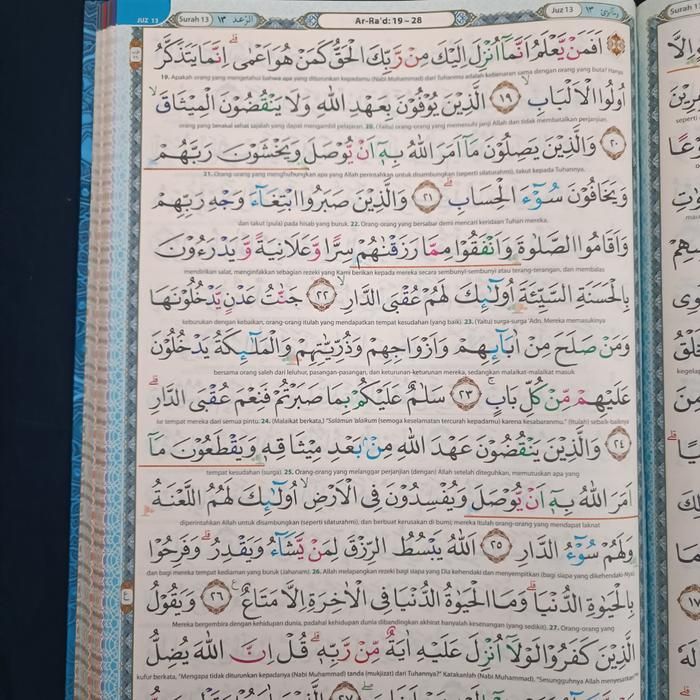 JUZ 13
Surah 13 ١٣ الرّعد
Ar-Ra'd: 19 ~ 28
Juz 13 ١٣
اَفَمَنْ يَّعْلَمُ اَنَّمَآ اُنْزِلَ اِلَيْكَ مِنْ رَّبِّكَ الْحَقُّ كَمَنْ هُوَ اَعْمٰىۗ اِنَّمَا يَتَذَكَّرُ
19. Apakah orang yang mengetahui bahwa apa yang diturunkan kepadamu (Nabi Muhammad) dari Tuhanmu adalah kebenaran sama dengan orang yang buta? Hanya
اُولُوا الْاَلْبَابِۙ ١٩ الَّذِيْنَ يُوْفُوْنَ بِعَهْدِ اللّٰهِ وَلَا يَنْقُضُوْنَ الْمِيْثَاقَۙ
orang yang berakal sehat sajalah yang dapat mengambil pelajaran. 20. (Yaitu) orang-orang yang memenuhi janji Allah dan tidak membatalkan perjanjian,
٢٠ وَالَّذِيْنَ يَصِلُوْنَ مَآ اَمَرَ اللّٰهُ بِهٖٓ اَنْ يُّوْصَلَ وَيَخْشَوْنَ رَبَّهُمْ
21. Orang-orang yang menghubungkan apa yang Allah perintahkan untuk disambungkan (seperti silaturahmi), takut kepada Tuhannya,
وَيَخَافُوْنَ سُوْۤءَ الْحِسَابِۗ ٢١ وَالَّذِيْنَ صَبَرُوا ابْتِغَاۤءَ وَجْهِ رَبِّهِمْ
dan takut (pula) pada hisab yang buruk. 22. Orang-orang yang bersabar demi mencari keridaan Tuhan mereka,
وَاَقَامُوا الصَّلٰوةَ وَاَنْفَقُوْا مِمَّا رَزَقْنٰهُمْ سِرًّا وَّعَلَانِيَةً وَّيَدْرَءُوْنَ
mendirikan salat, menginfakkan sebagian rezeki yang Kami berikan kepada mereka secara sembunyi-sembunyi atau terang-terangan, dan membalas
بِالْحَسَنَةِ السَّيِّئَةَ اُولٰۤىِٕكَ لَهُمْ عُقْبَى الدَّارِۙ ٢٢ جَنّٰتُ عَدْنٍ يَّدْخُلُوْنَهَا
keburukan dengan kebaikan, orang-orang itulah yang mendapatkan tempat kesudahan (yang baik). 23. (Yaitu) surga-surga 'Adn. Mereka memasukinya
وَمَنْ صَلَحَ مِنْ اٰبَاۤىِٕهِمْ وَاَزْوَاجِهِمْ وَذُرِّيّٰتِهِمْ وَالْمَلٰۤىِٕكَةُ يَدْخُلُوْنَ
bersama orang saleh dari leluhur, pasangan-pasangan, dan keturunan-keturunan mereka, sedangkan malaikat-malaikat masuk
عَلَيْهِمْ مِّنْ كُلِّ بَابٍۚ ٢٣ سَلٰمٌ عَلَيْكُمْ بِمَا صَبَرْتُمْ فَنِعْمَ عُقْبَى الدَّارِۗ
ke tempat mereka dari semua pintu. 24. (Malaikat berkata,) "Salāmun 'alaikum (semoga keselamatan tercurah kepadamu) karena kesabaranmu." (Itulah) sebaik-baiknya
٢٤ وَالَّذِيْنَ يَنْقُضُوْنَ عَهْدَ اللّٰهِ مِنْۢ بَعْدِ مِيْثَاقِهٖ وَيَقْطَعُوْنَ مَآ
tempat kesudahan (surga). 25. Orang-orang yang melanggar perjanjian (dengan) Allah setelah diteguhkan, memutuskan apa yang
اَمَرَ اللّٰهُ بِهٖٓ اَنْ يُّوْصَلَ وَيُفْسِدُوْنَ فِى الْاَرْضِۙ اُولٰۤىِٕكَ لَهُمُ اللَّعْنَةُ
diperintahkan Allah untuk disambungkan (seperti silaturahmi), dan berbuat kerusakan di bumi; mereka itulah orang-orang yang mendapat laknat
وَلَهُمْ سُوْۤءُ الدَّارِ ٢٥ اَللّٰهُ يَبْسُطُ الرِّزْقَ لِمَنْ يَّشَاۤءُ وَيَقْدِرُۗ وَفَرِحُوْا
dan bagi mereka tempat kediaman yang buruk (Jahanam). 26. Allah melapangkan rezeki bagi siapa yang Dia kehendaki dan menyempitkan (bagi siapa yang dikehendaki-Nya)
بِالْحَيٰوةِ الدُّنْيَاۗ وَمَا الْحَيٰوةُ الدُّنْيَا فِى الْاٰخِرَةِ اِلَّا مَتَاعٌ ٢٦ وَيَقُوْلُ
Mereka bergembira dengan kehidupan dunia, padahal kehidupan dunia dibandingkan akhirat hanyalah kesenangan (yang sedikit). 27. Orang-orang yang
الَّذِيْنَ كَفَرُوْا لَوْلَآ اُنْزِلَ عَلَيْهِ اٰيَةٌ مِّنْ رَّبِّهٖۗ قُلْ اِنَّ اللّٰهَ يُضِلُّ
kufur berkata, "Mengapa tidak diturunkan kepadanya (Nabi Muhammad) tanda (mukjizat) dari Tuhannya?" Katakanlah (Nabi Muhammad), "Sesungguhnya Allah menyesatkan